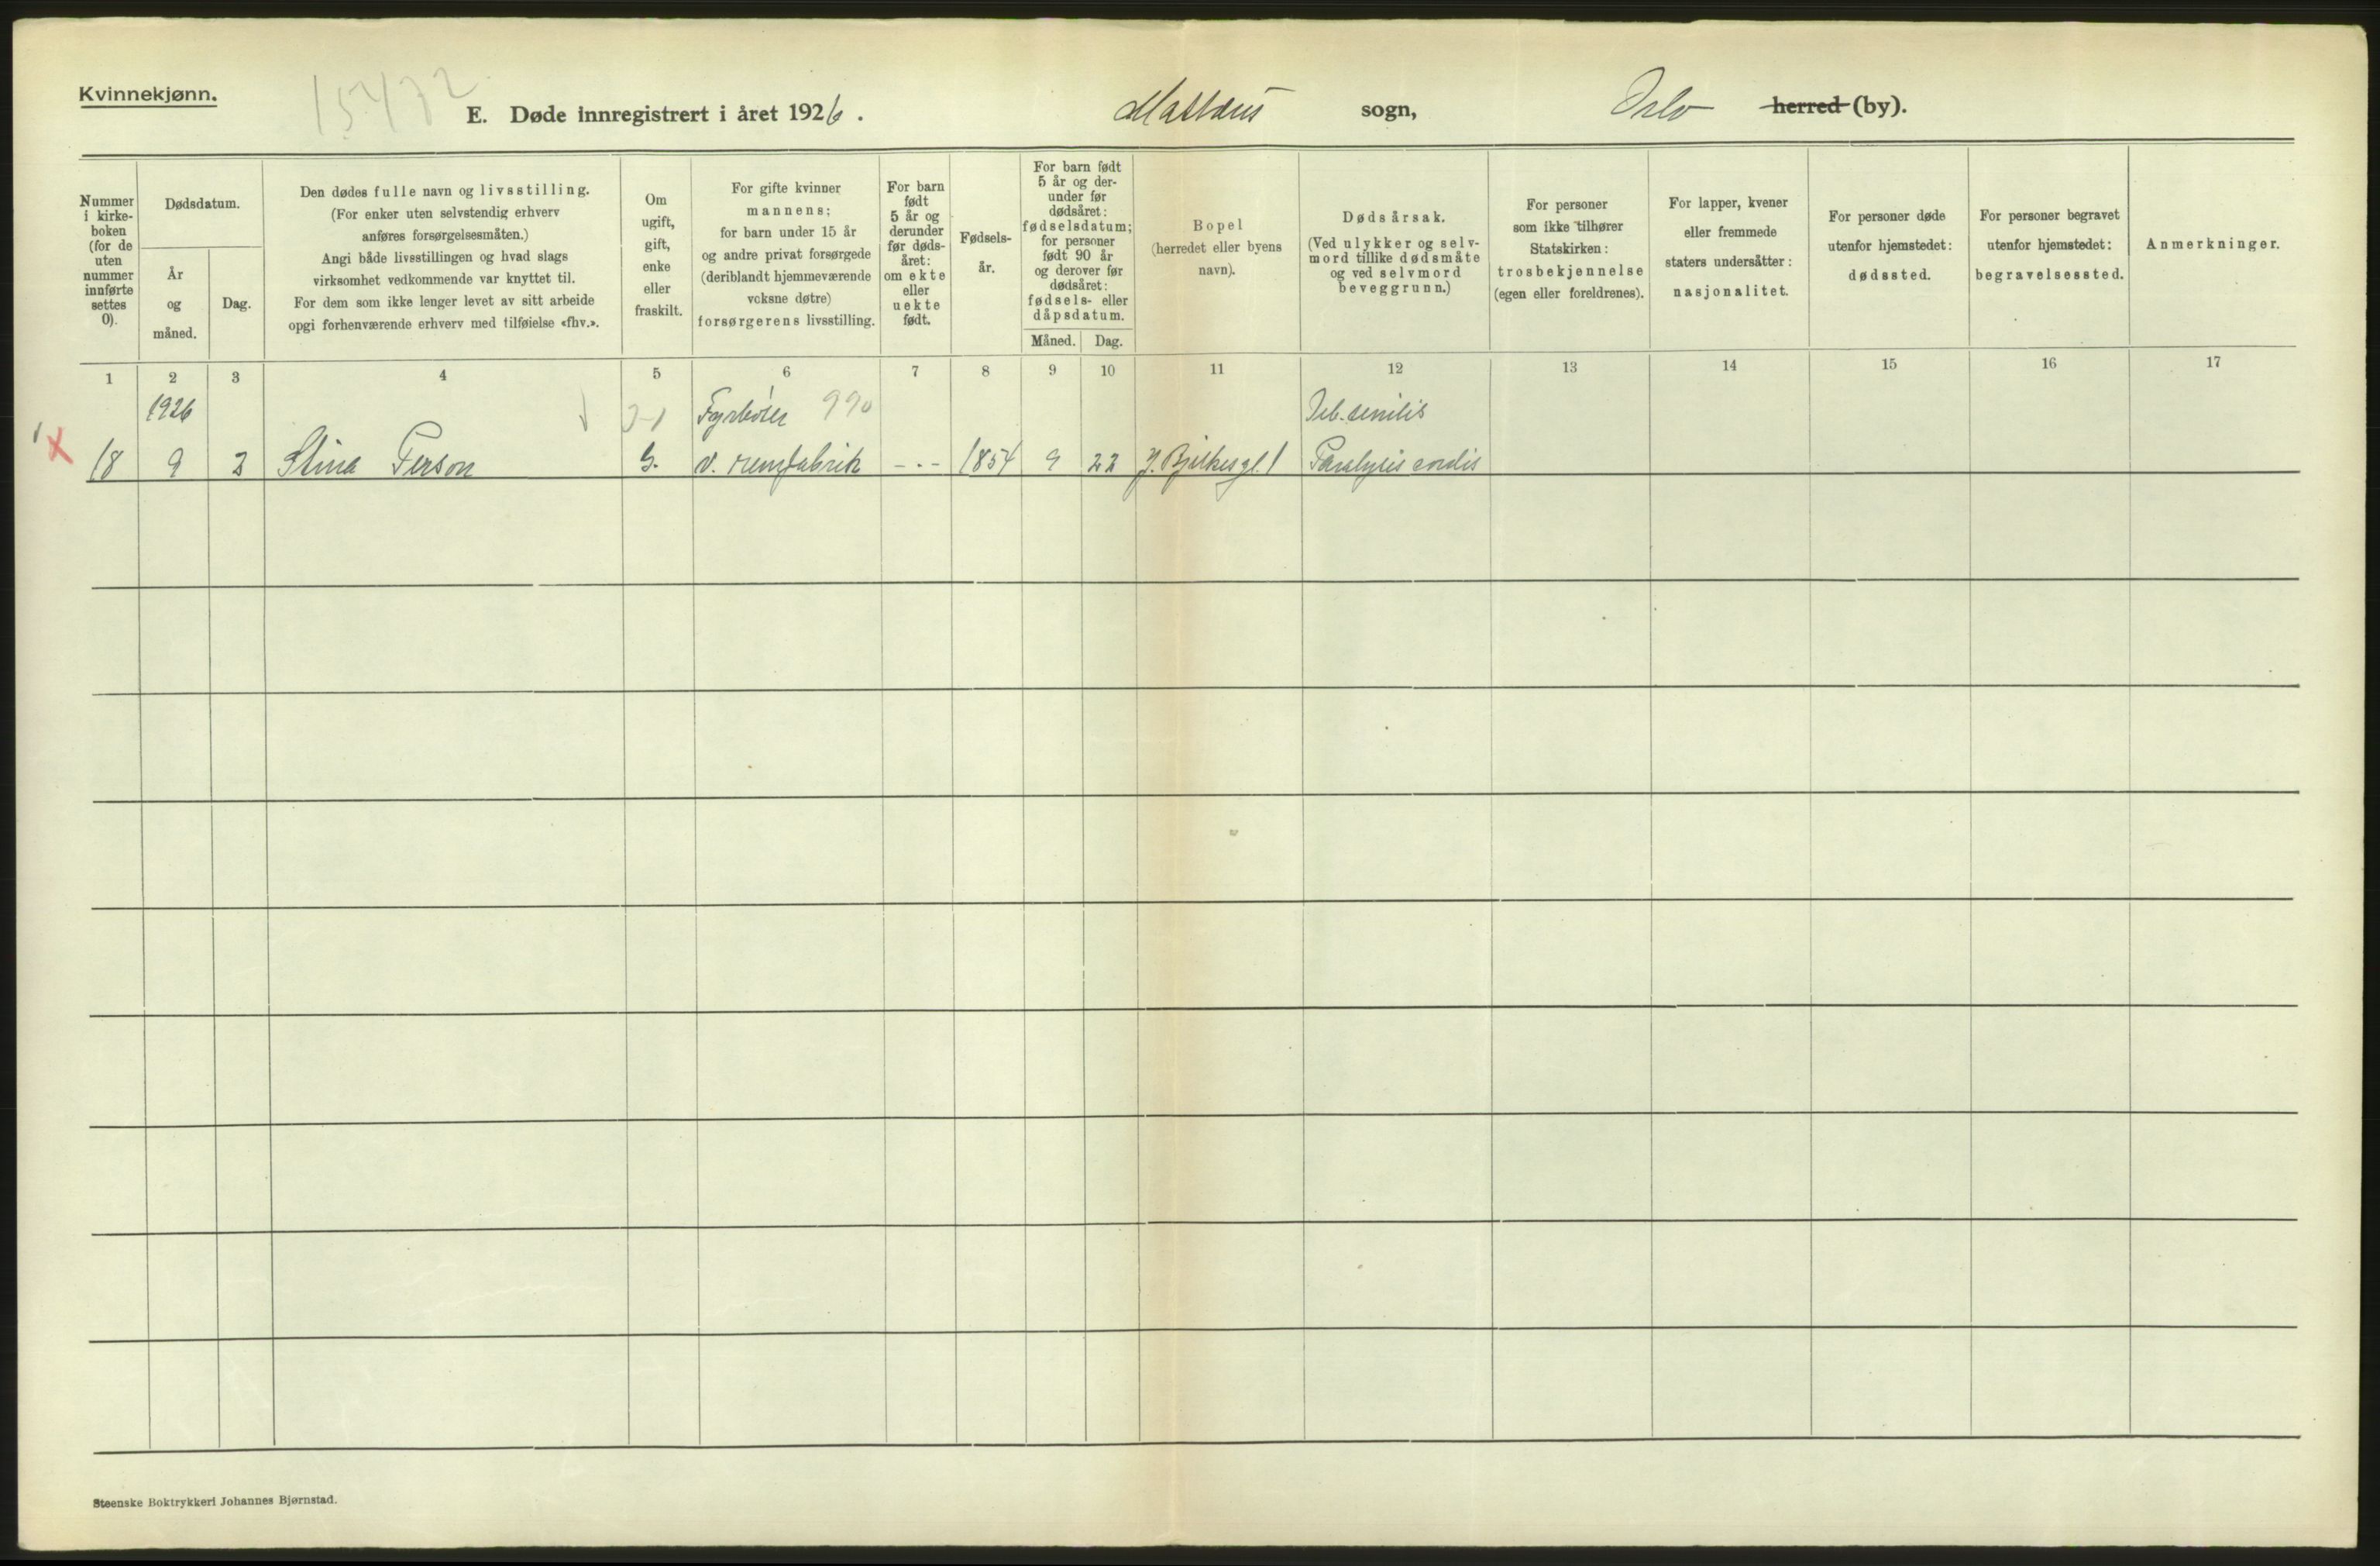 Kvinnekjønn.
15472
E. Døde innregistrert i året 1926. Mattæus sogn, Oslo herred (by).
Nummer i kirke-
boken
(for de
uten
nummer
innførte
settes
0).
Dødsdatum.
År
og
måned.
Dag.
Den dødes fulle navn og livsstilling.
(For enker uten selvstendig erhverv
anføres forsørgelsesmåten.)
Angi både livsstillingen og hvad slags
virksomhet vedkommende var knyttet til.
For dem som ikke lenger levet av sitt arbeide
opgi forhenværende erhverv med tilføielse «fhv.».
Om
ugift,
gift,
enke
eller
fraskilt.
For gifte kvinner
mannens;
for barn under 15 år
og andre privat forsørgede
(deriblandt hjemmeværende
voksne døtre)
forsørgerens livsstilling.
For barn
født
5 år og
derunder
før døds-
året:
om ekte
eller
uekte
født.
Fødsels-
år.
For barn født
5 år og der-
under før
dødsåret:
fødselsdatum;
for personer
født 90 år
og derover før
dødsåret:
fødsels- eller
dåpsdatum.
Måned. Dag.
Bopel
(herredet eller byens
navn).
Dødsårsak.
(Ved ulykker og selv-
mord tillike dødsmåte
og ved selvmord
beveggrunn.)
For personer
som ikke tilhører
Statskirken:
trosbekjennelse
(egen eller foreldrenes).
For lapper, kvener
eller fremmede
staters undersåtter:
nasjonalitet.
For personer døde
utenfor hjemstedet:
dødssted.
For personer begravet
utenfor hjemstedet:
begravelsessted.
Anmerkninger.
1 2 3 4 5 6 7 8 9 10 11 12 13 14 15 16 17
1926 Fyrbøter 990 Deb. senilis
18 9 3 Stina Person G. v. remfabrik -.- 1854 9 22 J. Bjelkesgt. 1 Paralysis cordis
Steenske Boktrykkeri Johannes Bjørnstad.